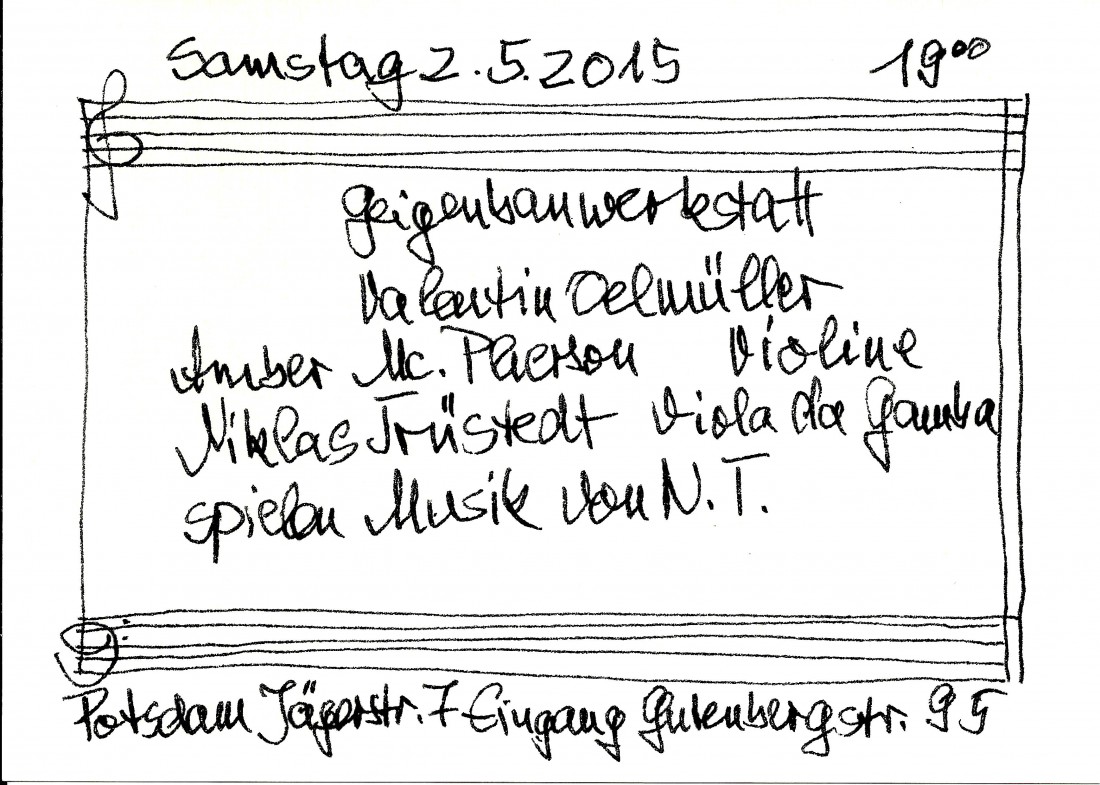 Samstag 2.5.2015 19⁰⁰
Geigenbauwerkstatt
Valentin Oelmüller
Amber Mc. Pherson Violine
Niklas Trüstedt Viola da Gamba
spielen Musik von N.T.
Potsdam Jägerstr. 7 Eingang Gutenbergstr. 95